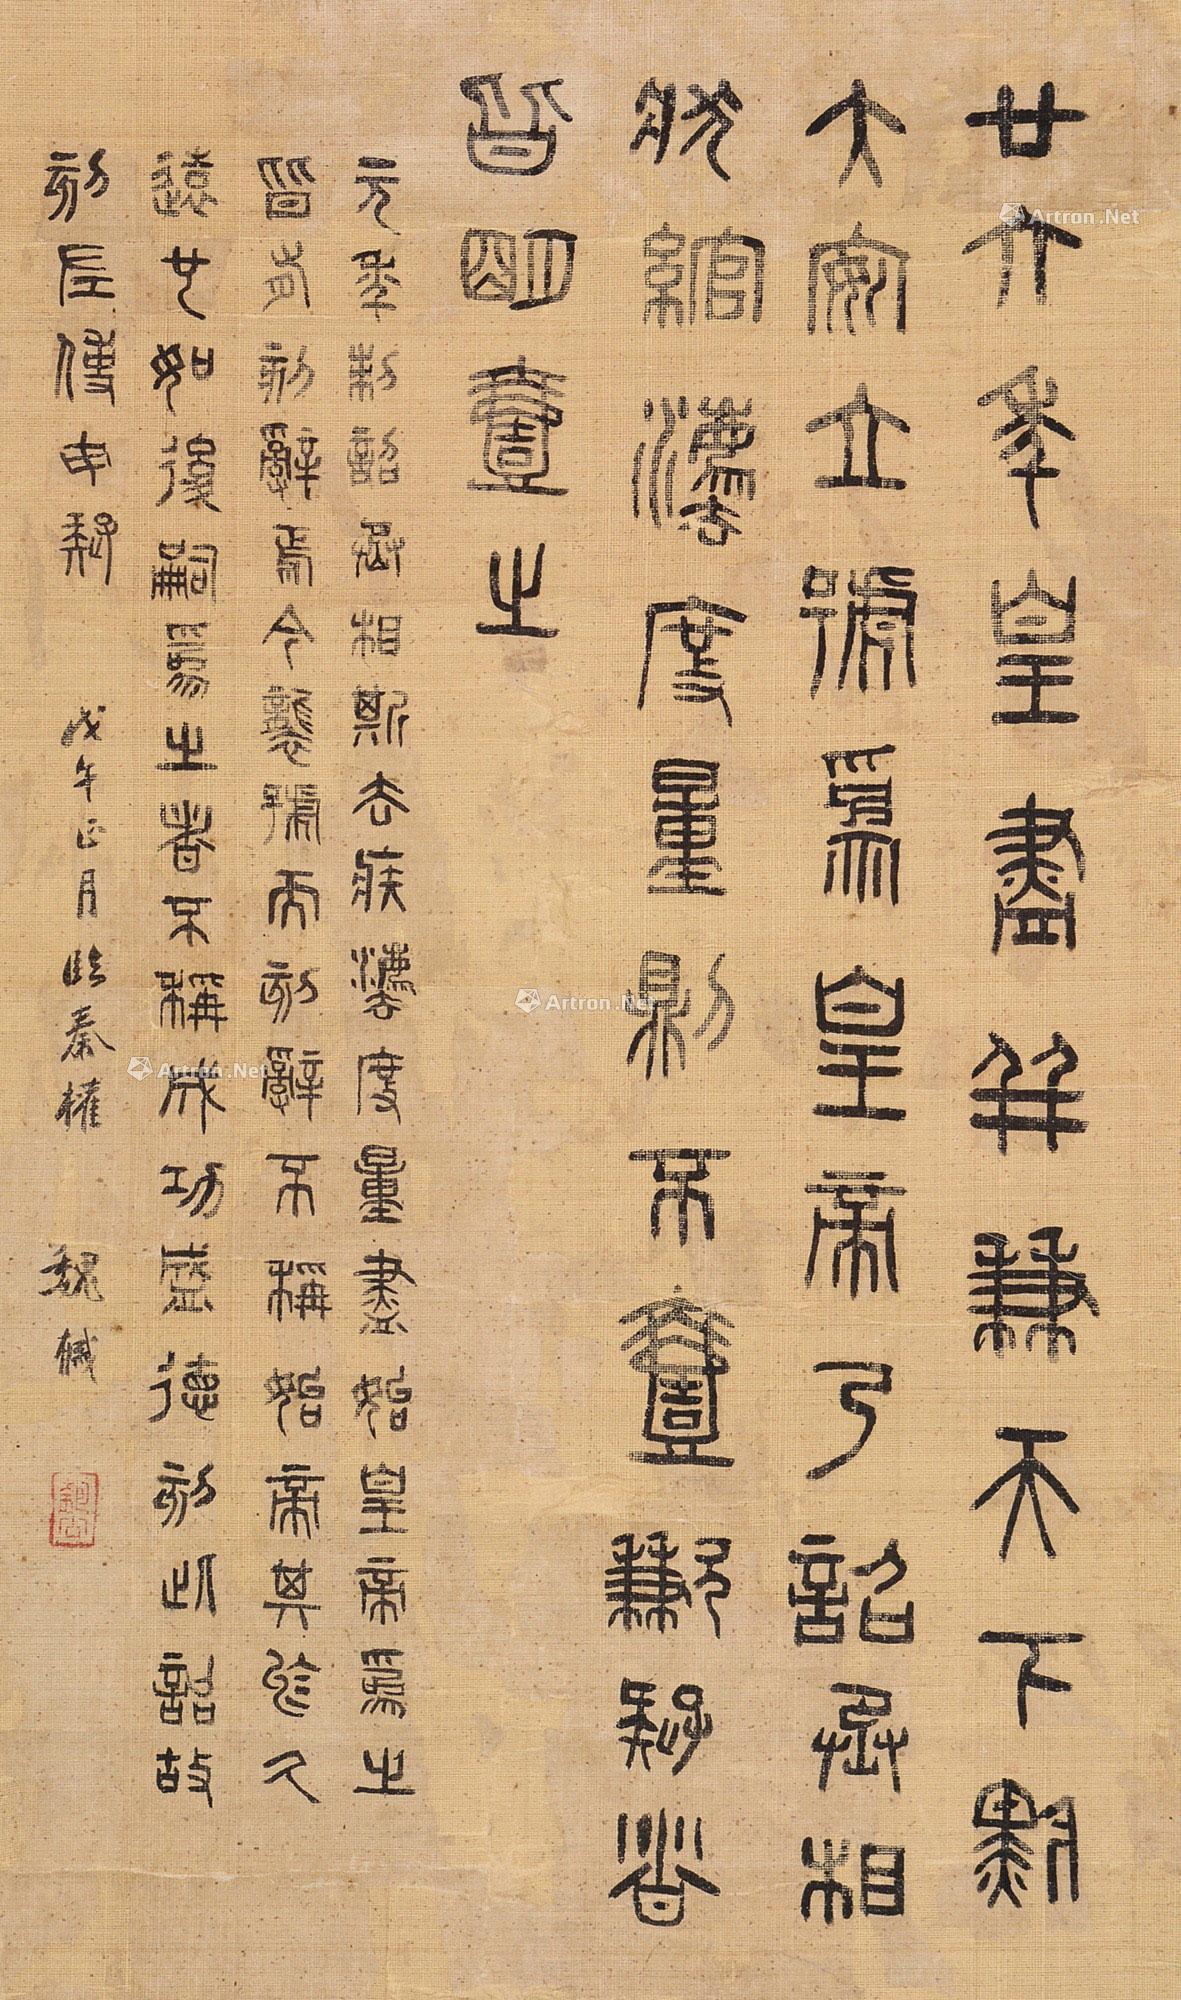 廿六年皇盡并兼天下黔
大安立號為皇帝乃詔丞相
狀綰灋度量則不壹歉疑者
皆明壹之
元年制詔丞相斯去疾灋度量盡始皇帝為之
皆有刻辭焉今襲號而刻辭不稱始帝其於久
遠世如後嗣為之者不稱成功盛德刻此詔故
刻左使毋疑 戊午正月臨秦權 魏戫
匏公
Artron.Net
Artron.Net
Artron.Net